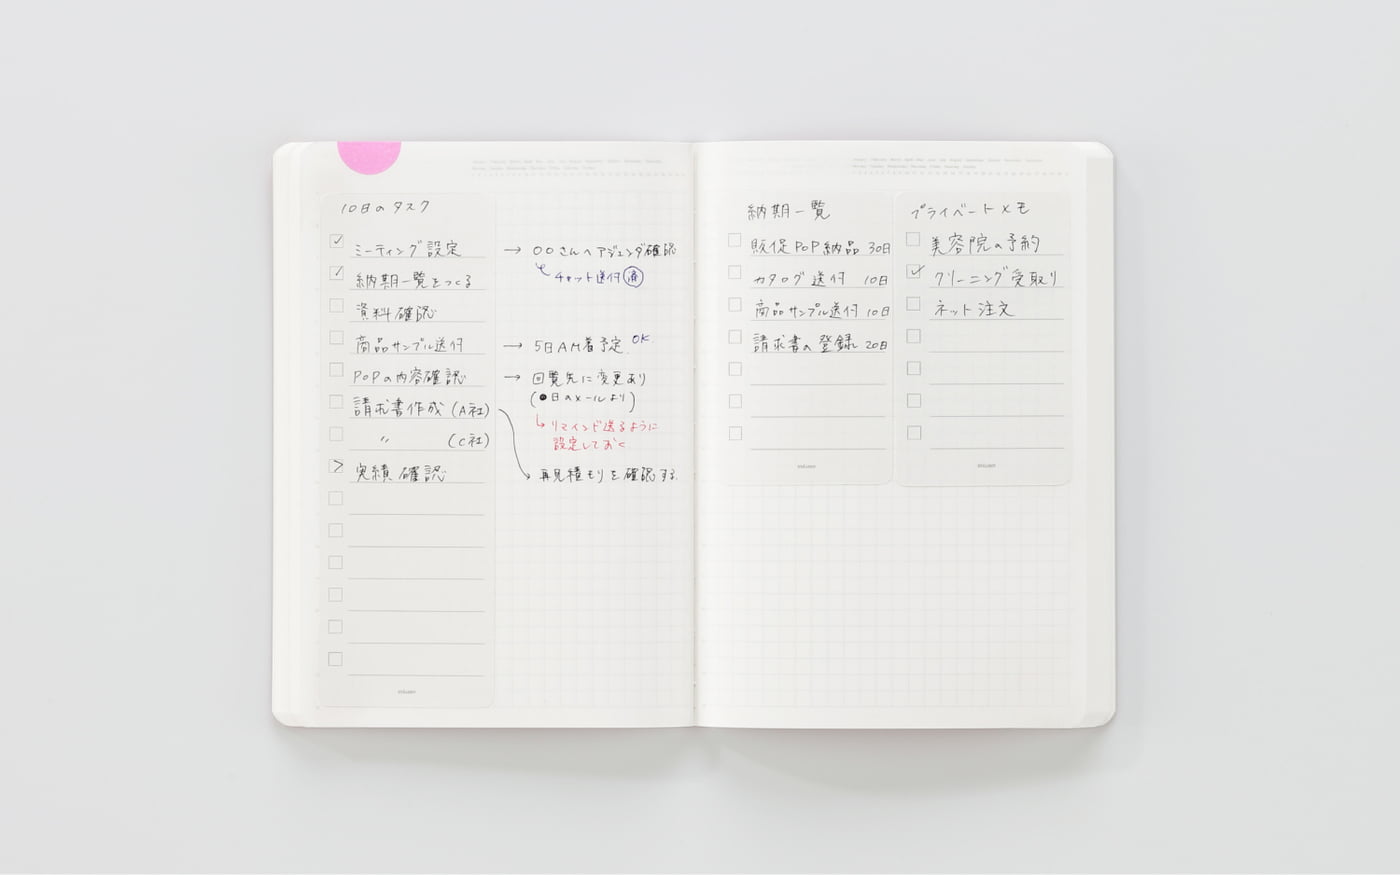 10日のタスク
ミーティング設定
納期一覧をつくる
資料確認
商品サンプル送付
POPの内容確認
請求書作成（A社）
〃　（C社）
実績確認
→ ○○さんへアジェンダ確認
チャット送付 済
→ 5日AM着予定 OK
→ 回覧先に変更あり
（●日のメールより）
リマインド送るように
設定しておく
再見積もりを確認する.
納期一覧
販促POP納品 30日
カタログ送付 10日
商品サンプル送付 10日
請求書の登録 20日
プライベートメモ
美容院の予約
クリーニング受取り
ネット注文